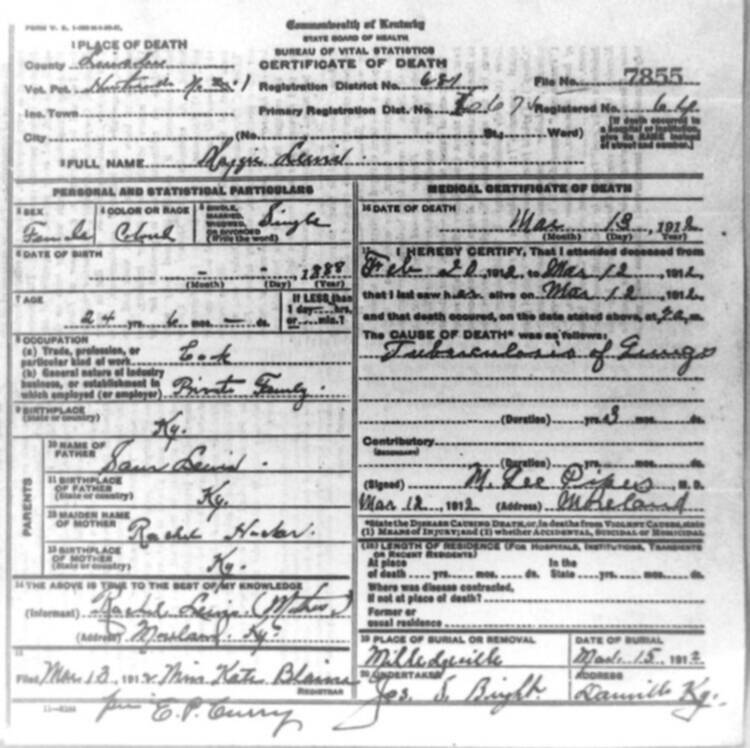 Commonwealth of Kentucky
STATE BOARD OF HEALTH
BUREAU OF VITAL STATISTICS
CERTIFICATE OF DEATH
1 PLACE OF DEATH
County
Vot. Pct. No 1 Registration District No. 687 File No. 7855
Inc. Town Primary Registration Dist. No. Registered No.
City (No. St.; Ward) [If death occurred in a hospital or institution, give its NAME instead of street and number.]
2 FULL NAME Maggie Lewis
PERSONAL AND STATISTICAL PARTICULARS
3 SEX Female
4 COLOR OR RACE Colored
5 SINGLE, MARRIED, WIDOWED, OR DIVORCED (Write the word) Single
6 DATE OF BIRTH - - , 1888
(Month) (Day) (Year)
7 AGE 24 yrs. 6 mos. - ds.
If LESS than 1 day....hrs. or....min.?
8 OCCUPATION
(a) Trade, profession, or particular kind of work Cook
(b) General nature of industry business, or establishment in which employed (or employer) Private Family
9 BIRTHPLACE (State or country) Ky.
PARENTS
10 NAME OF FATHER Sam Lewis.
11 BIRTHPLACE OF FATHER (State or country) Ky.
12 MAIDEN NAME OF MOTHER Rachel
13 BIRTHPLACE OF MOTHER (State or country) Ky.
14 THE ABOVE IS TRUE TO THE BEST OF MY KNOWLEDGE
(Informant) Rachel Lewis (Mother)
(Address) Moreland Ky
15
Filed Mar 13, 1912 Miss Kate Blaine
REGISTRAR
per E. P. Curry
MEDICAL CERTIFICATE OF DEATH
16 DATE OF DEATH
Mar 13, 1912
(Month) (Day) (Year)
17 I HEREBY CERTIFY, That I attended deceased from
Feb 20, 1912, to Mar 12, 1912,
that I last saw her alive on Mar 12, 1912,
and that death occured, on the date stated above, at m.
The CAUSE OF DEATH* was as follows:
Tuberculosis of Lungs
(Duration) yrs. 3 mos. ds.
Contributory
(SECONDARY)
(Duration) yrs. mos. ds.
(Signed) M. Lee Pipes M. D.
Mar 12, 1912 (Address) Moreland
*State the DISEASE CAUSING DEATH, or, in deaths from VIOLENT CAUSES, state
(1) MEANS OF INJURY; and (2) whether ACCIDENTAL, SUICIDAL or HOMICIDAL
(18) LENGTH OF RESIDENCE (FOR HOSPITALS, INSTITUTIONS, TRANSIENTS OR RECENT RESIDENTS)
At place In the
of death yrs. mos. ds. State yrs. mos. ds.
Where was disease contracted,
if not at place of death?
Former or
usual residence
19 PLACE OF BURIAL OR REMOVAL DATE OF BURIAL
Milledgeville Mar. 15, 1912
20 UNDERTAKER ADDRESS
Jos. S. Bright. Danville Ky.